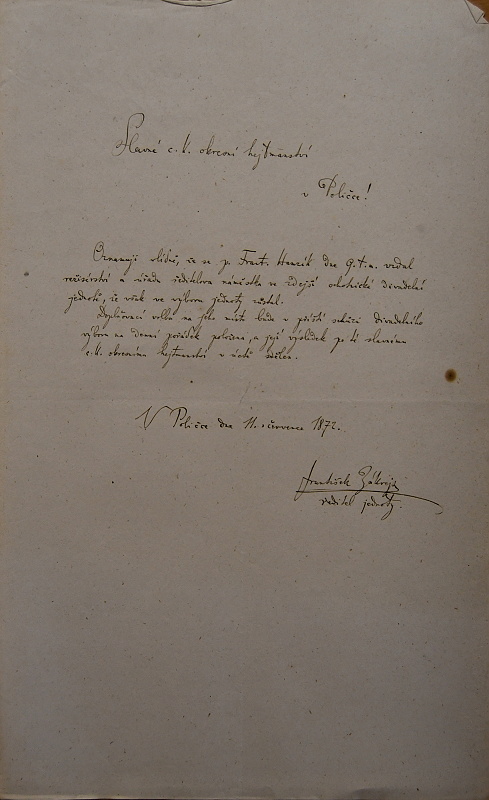 Slavné c. k. okresní hejtmanství
v Poličce!
Oznamuji slušně, že se p. Frant. Hanzlík dne 9. t. m. vzdal
režisérství a úřadu ředitelova náměstka ve zdejší ochotnické divadelní
jednotě, že však ve výboru jednoty zůstal.
Doplňovací volba na jeho místo bude v příští schůzi divadelního
výboru na denní pořádek položena, a její výsledek po té slavnému
c. k. okresnímu hejtmanství v úctě sdělen.
V Poličce dne 11. července 1872.
František
ředitel jednoty.